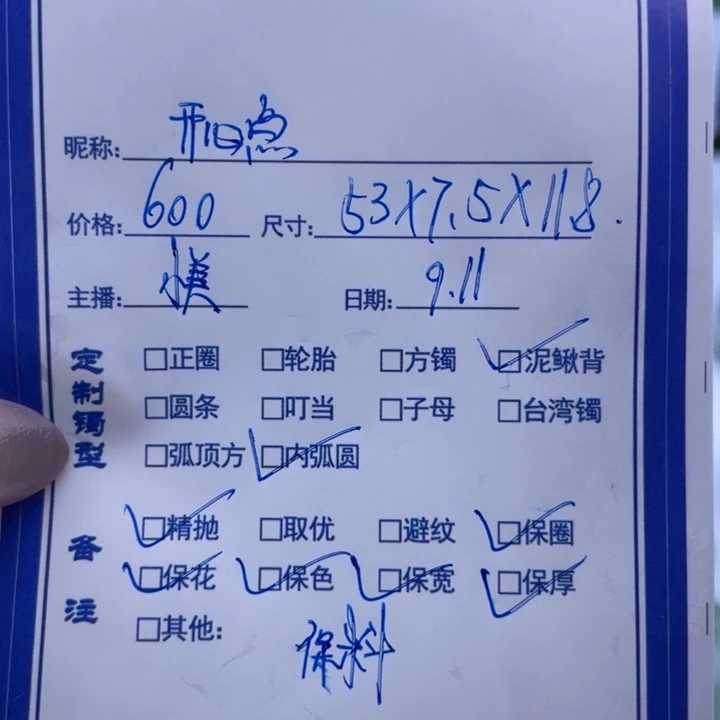 昵称:
价格: 600 尺寸: 53X7.5X11.8.
主播: 小美 日期: 9.11
定制镯型
□正圈 □轮胎 □方镯 ☑泥鳅背
□圆条 □叮当 □子母 □台湾镯
□弧顶方 ☑内弧圆
备注
☑精抛 □取优 □避纹 ☑保圈
☑保花 ☑保色 ☑保宽 ☑保厚
□其他: 保料